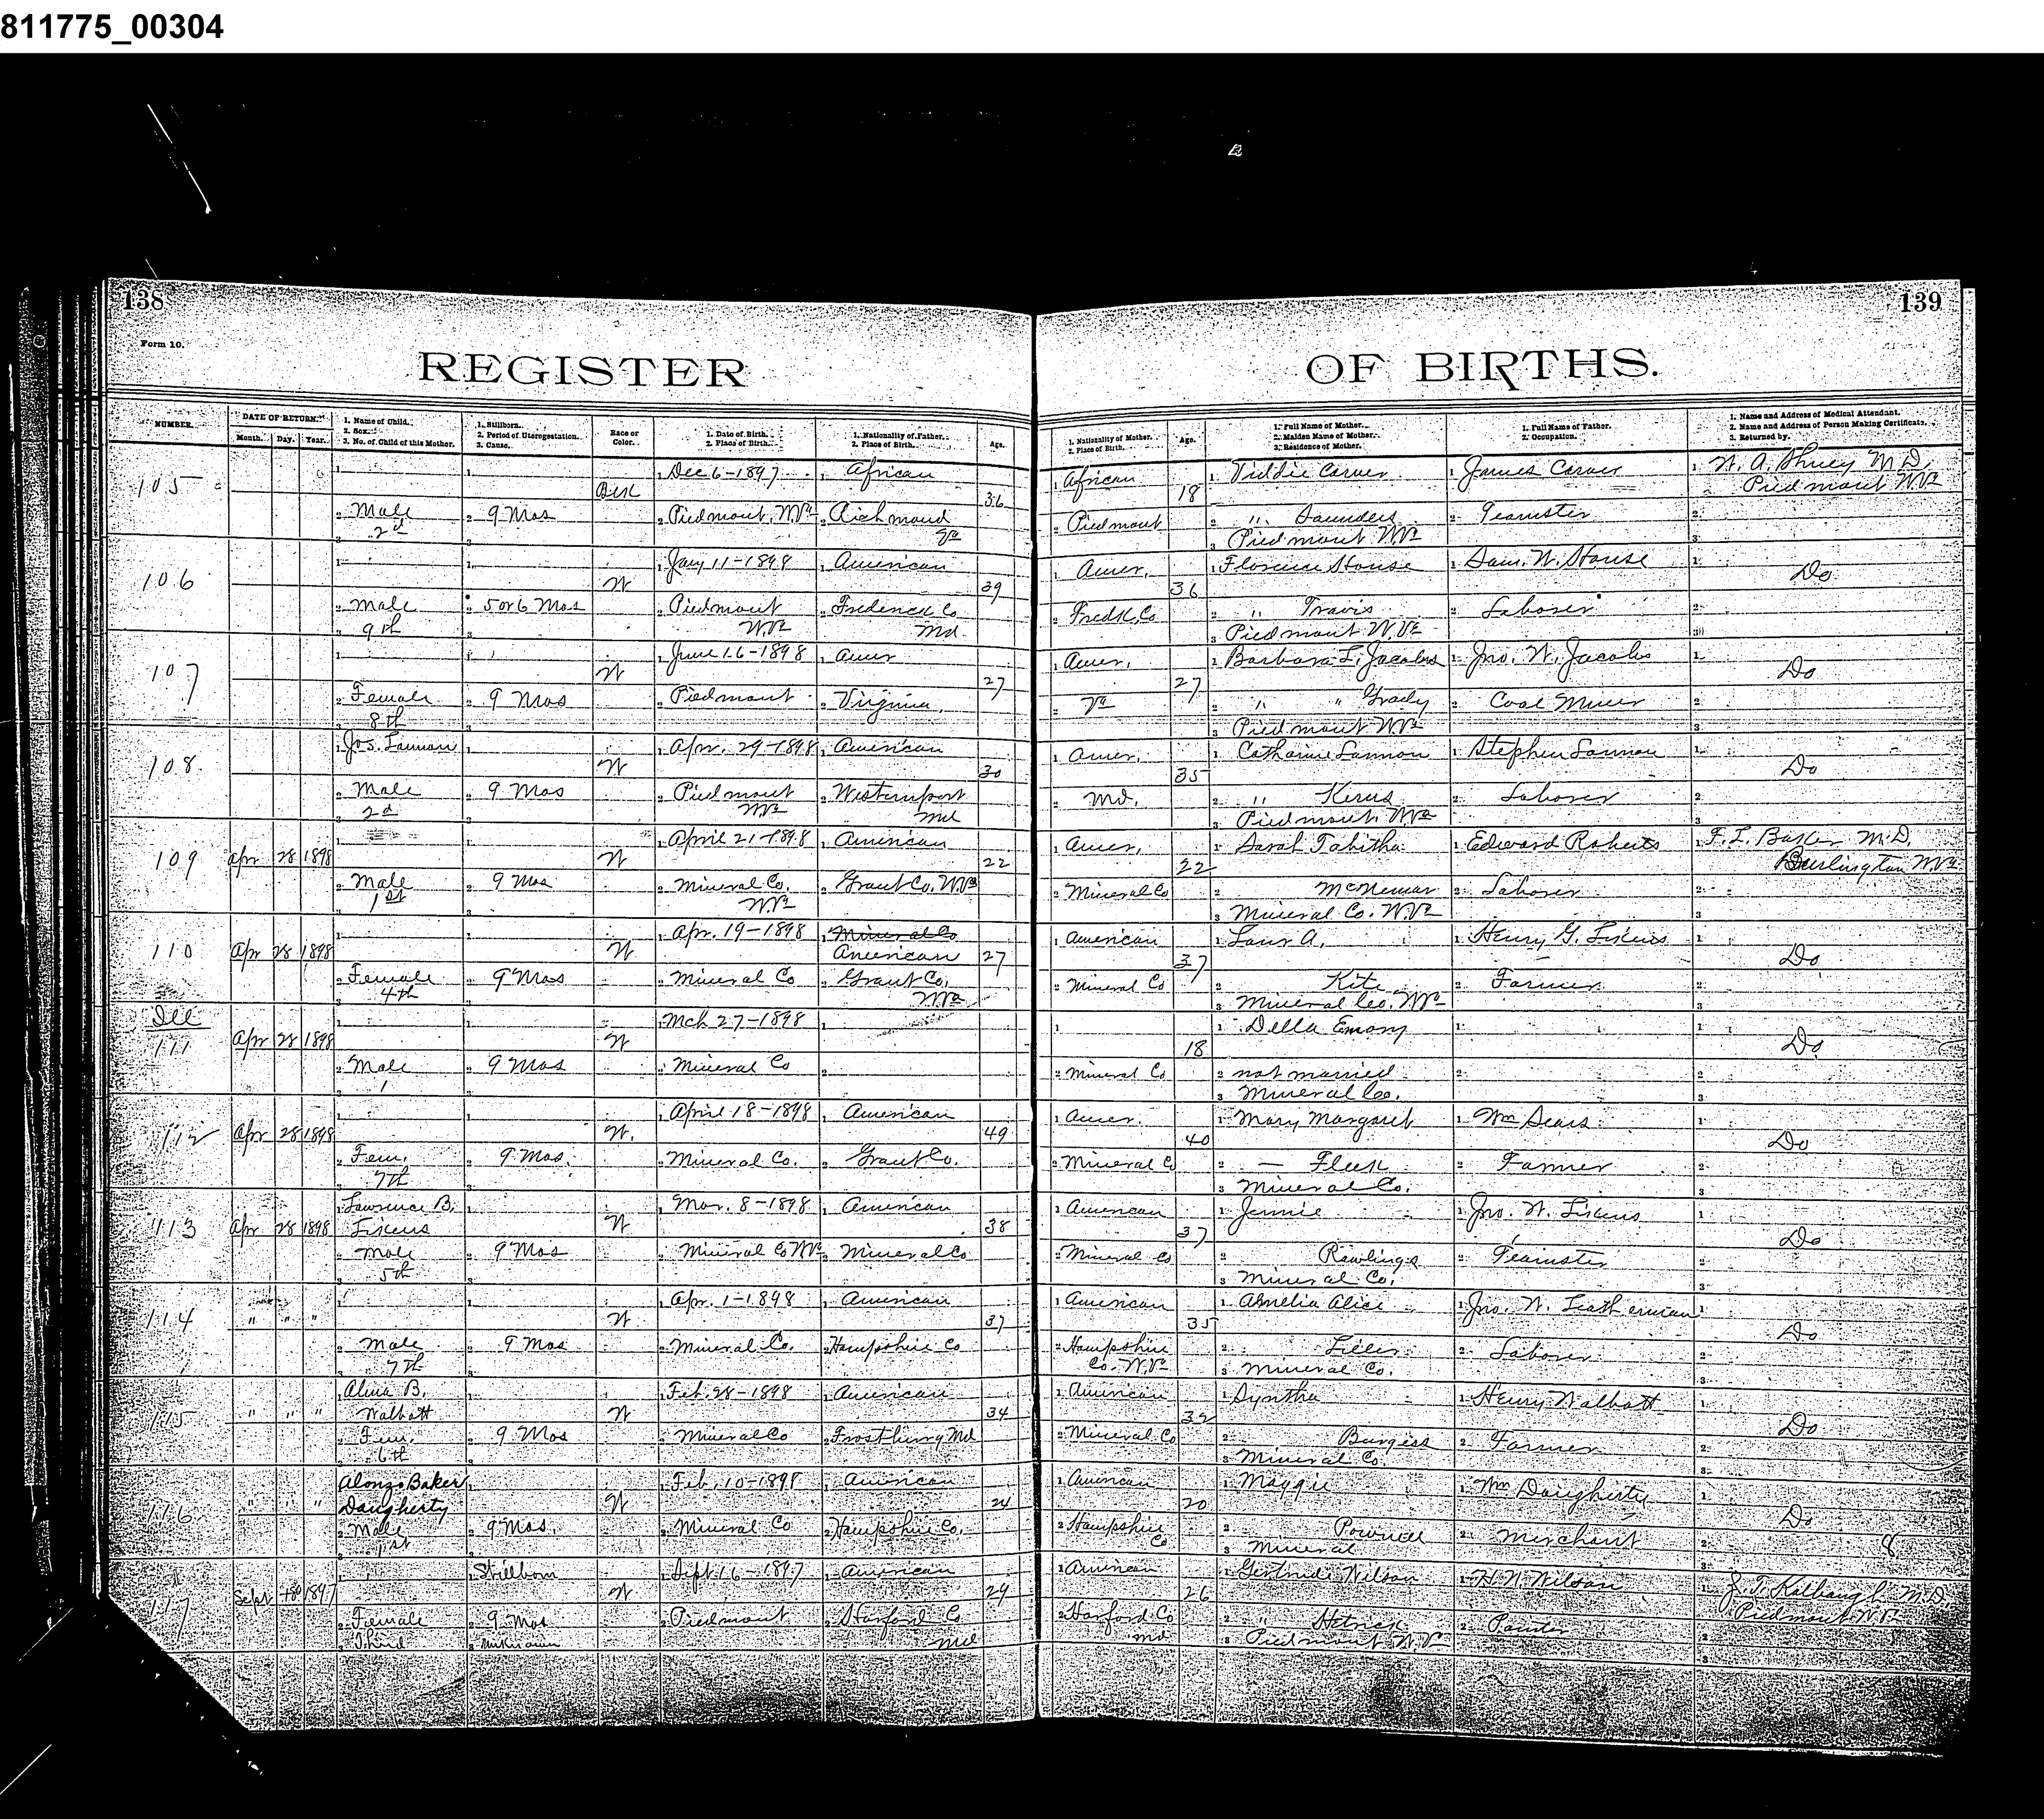 811775_00304
138
139
Form 10.
REGISTER OF BIRTHS.
NUMBER.
DATE OF RETURN.
Month. Day. Year.
1. Name of Child.
2. Sex.
3. No. of Child of this Mother.
1. Stillborn.
2. Period of Uterogestation.
3. Cause.
Race or Color.
1. Date of Birth.
2. Place of Birth.
1. Nationality of Father.
2. Place of Birth.
Age.
1. Nationality of Mother.
2. Place of Birth.
Age.
1. Full Name of Mother.
2. Maiden Name of Mother.
3. Residence of Mother.
1. Full Name of Father.
2. Occupation.
1. Name and Address of Medical Attendant.
2. Name and Address of Person Making Certificate.
3. Returned by.
105 1 1 1 Dec 6-1897 1 African 36 1 African 18 1 Carver 1 James Carver 1 M.D.
Piedmont W.Va
2 Male 2 9 Mos 2 Piedmont, W.Va 2 Richmond Va 2 Piedmont 2 " Saunders 2 Teamster
2d 3 Piedmont W.Va
106 1 1 W 1 Jany 11-1898 1 American 39 1 Amer. 36 1 Florence Stouse 1 Sam. W. Stouse Do
2 Male 2 5 or 6 Mos 2 Piedmont W.Va 2 Frederick Co Md. 2 Fredk. Co 2 " Travis 2 Laborer
9th 3 Piedmont W.Va
107 1 1 W 1 June 16-1898 1 Amer 27 1 Amer. 27 1 Barbara L. Jacobs 1 Jno. W. Jacobs Do
2 Female 2 9 Mos 2 Piedmont 2 Virginia. 2 Va 2 " " Grady 2 Coal Miner
8th 3 Piedmont W.Va
108 1 Jos. Lannon 1 W 1 Apr. 29-1898 1 American 30 1 Amer. 35 1 Catharine Lannon 1 Stephen Lannon Do
2 Male 2 9 Mos 2 Piedmont W.Va 2 Westernport Md 2 Md. 2 " Kerns 2 Laborer
2d 3 Piedmont. W.Va
109 Apr 28 1898 1 1 W 1 April 21-1898 1 American 22 1 Amer. 22 1 Sarah Tabitha 1 Edward Roberts 1 F. L. Baker M.D.
Burlington W.Va
2 Male 2 9 Mos 2 Mineral Co. W.Va 2 Grant Co. W.Va 2 Mineral Co 2 McNemar 2 Laborer
1st 3 Mineral Co. W.Va
110 Apr 28 1898 1 1 W 1 Apr. 19-1898 1 Mineral Co American 27 1 American 37 1 Laur A. 1 Henry G. Likens Do
2 Female 2 9 Mos 2 Mineral Co 2 Grant Co. W.Va 2 Mineral Co 2 Kite 2 Farmer
4th 3 Mineral Co. W.Va
Ill
111 Apr 28 1898 1 1 W 1 Mch 27-1898 1 1 18 1 Della Emory 1 Do
2 Male 2 9 Mos 2 Mineral Co 2 2 Mineral Co 2 not married 2
1 3 Mineral Co.
112 Apr 28 1898 1 1 W. 1 April 18-1898 1 American 49 1 Amer. 40 1 Mary Margaret 1 Wm Sears Do
2 Fem. 2 9 Mos. 2 Mineral Co. 2 Grant Co. 2 Mineral Co 2 — Fleek 2 Farmer
7th 3 Mineral Co.
113 Apr 28 1898 1 Lawrence B. Likens 1 W 1 Mar. 8-1898 1 American 38 1 American 37 1 Jennie 1 Jno. W. Likens Do
2 Male 2 9 Mos 2 Mineral Co W.Va 2 Mineral Co 2 Mineral Co 2 Rawlings 2 Teamster
5th 3 Mineral Co.
114 " " " 1 1 W 1 Apr. 1-1898 1 American 37 1 American 35 1 Amelia Alice 1 Jno. W. Leatherman Do
2 Male 2 9 Mos 2 Mineral Co. 2 Hampshire Co 2 Hampshire Co. W.Va 2 Liller 2 Laborer
7th 3 Mineral Co.
115 " " " 1 Alina B. Walbatt 1 W 1 Feb. 28-1898 1 American 34 1 American 32 1 Syntha 1 Henry Walbatt Do
2 Fem. 2 9 Mos 2 Mineral Co 2 Frostburg Md 2 Mineral Co 2 Burgess 2 Farmer
6th 3 Mineral Co.
116 " " " Alonzo Baker Daugherty 1 W 1 Feb. 10-1898 1 American 24 1 American 20 1 Maggie 1 Wm Daugherty Do
2 Male 2 9 Mos. 2 Mineral Co 2 Hampshire Co. 2 Hampshire Co 2 Pownell 2 Merchant 8
1st 3 Mineral
117 Sept 1897 1 1 Stillborn W 1 Sept. 16-1897 1 American 29 1 American 26 1 Gertrude Wilson 1 H. W. Wilson 1 J. T. Kalbaugh M.D.
Piedmont W.Va
2 Female 2 9 Mos 2 Piedmont 2 Harford Co Md 2 Harford Co Md 2 " Hetrick 2 Painter
Third 3 unknown 3 Piedmont W.Va